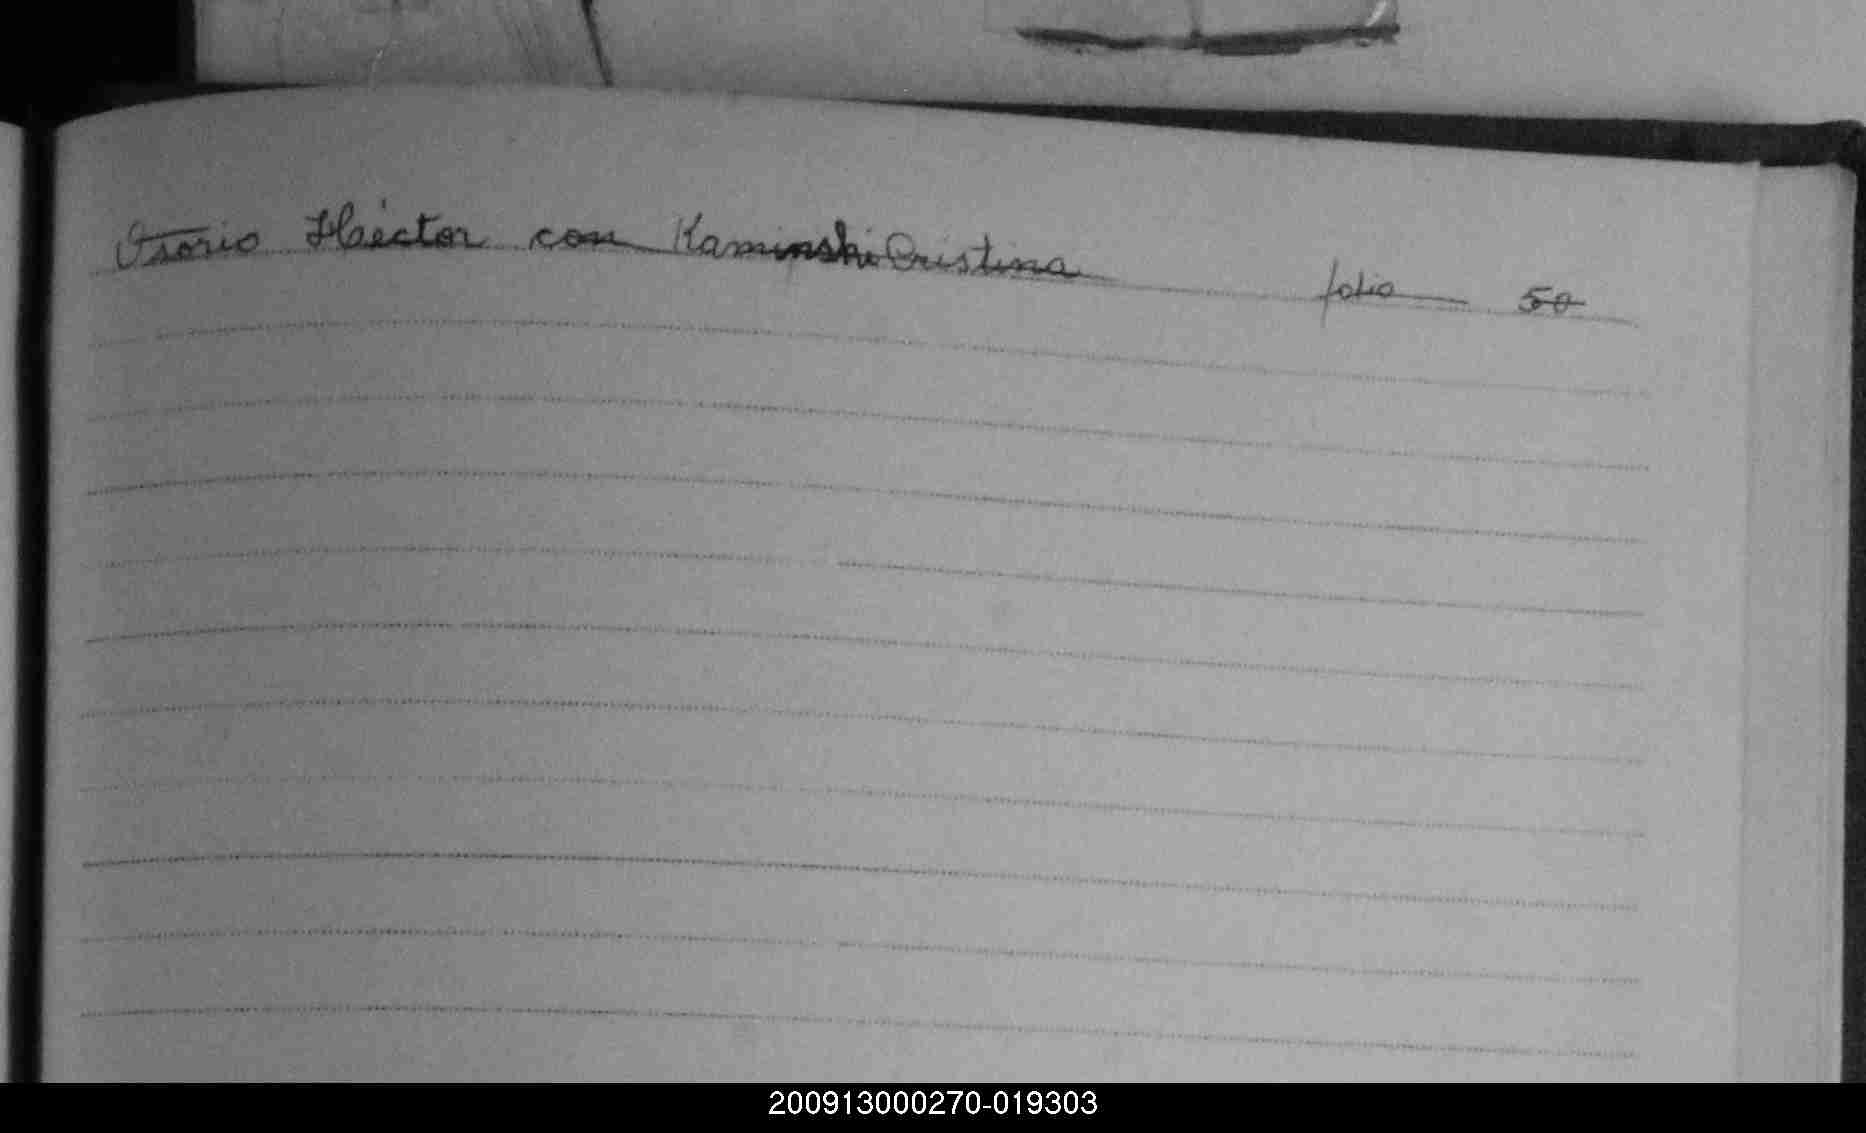 Osorio Héctor con Kaminski Cristina folio 50
200913000270-019303